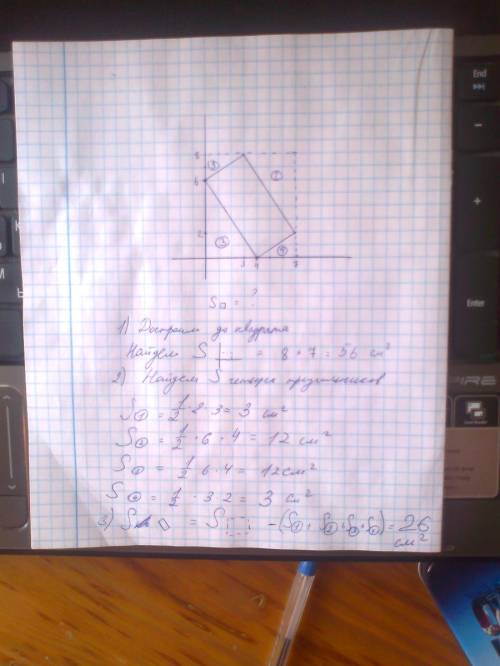 End
Enter
8
6
2
3 4 7
①
②
③
④
S▱ = ?
1) Достроим до квадрата
Найдем S = 8 · 7 = 56 см²
2) Найдем S четырех треугольников
S① = 1/2 · 2 · 3 = 3 см²
S② = 1/2 · 6 · 4 = 12 см²
S = 1/2 · 6 · 4 = 12 см²
S④ = 1/2 · 3 · 2 = 3 см²
3) S▱ = S□ - (S① + S② + S③ + S④) = 26
см²